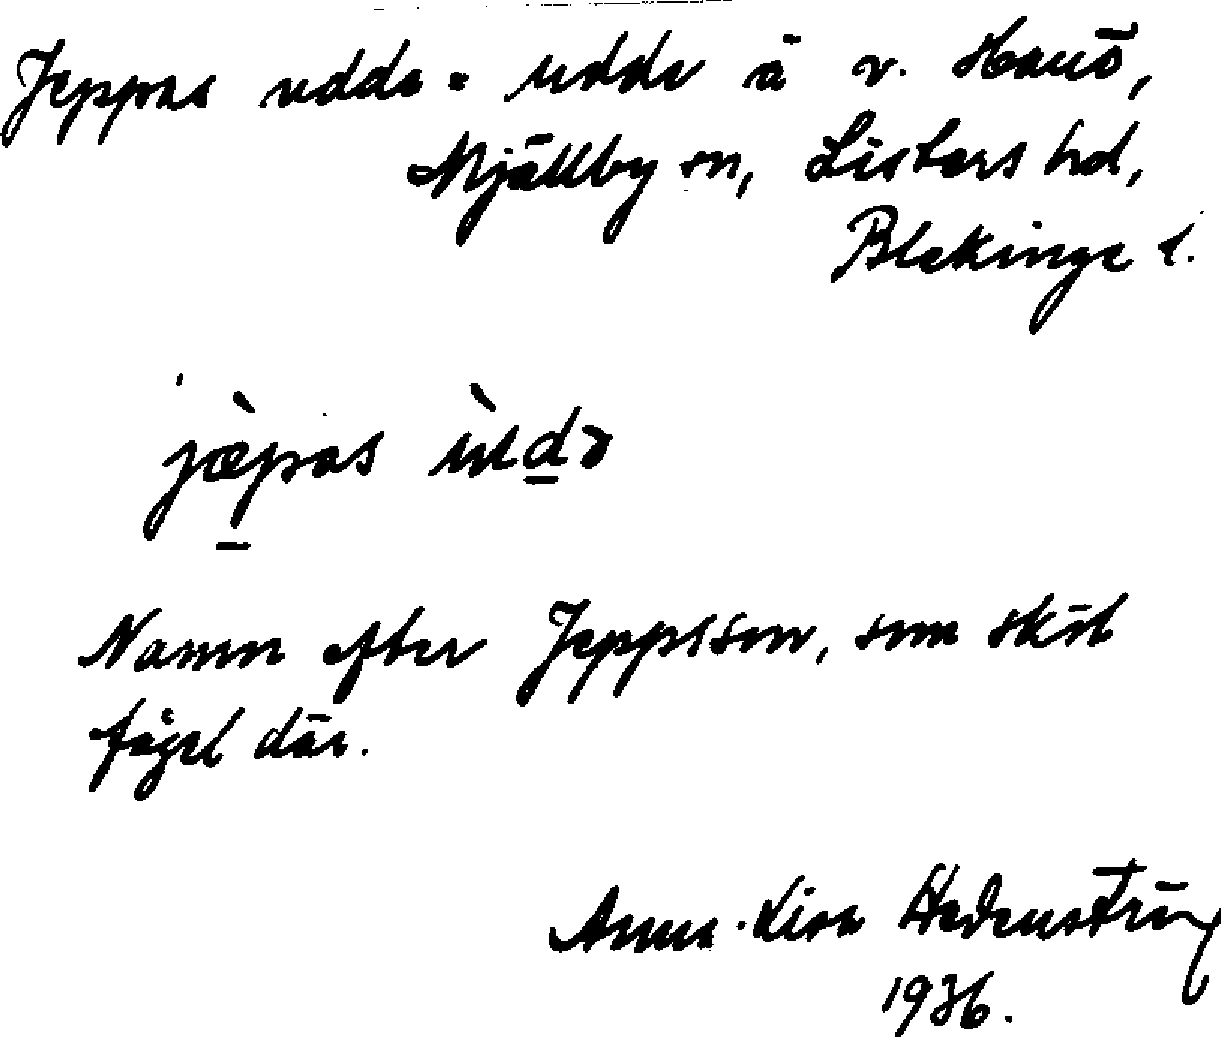 Jeppas udde. Udde å v. Hanö,
Mjällby sn, Listers hd,
Blekinge l.
jæ̀pas ùdə
Namn efter Jeppsson, som sköt
fågel där.
Anna-Lisa Hedenström
1936.